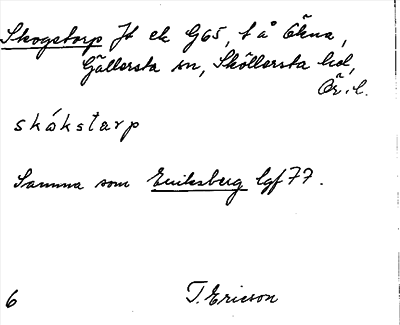 Skogstorp Jt ek G65, t å Ökna,
Gällersta sn, Sköllersta hd,
Ör. l.
skókstarp
Samma som Eriksberg lgf 77.
6 T. Ericson